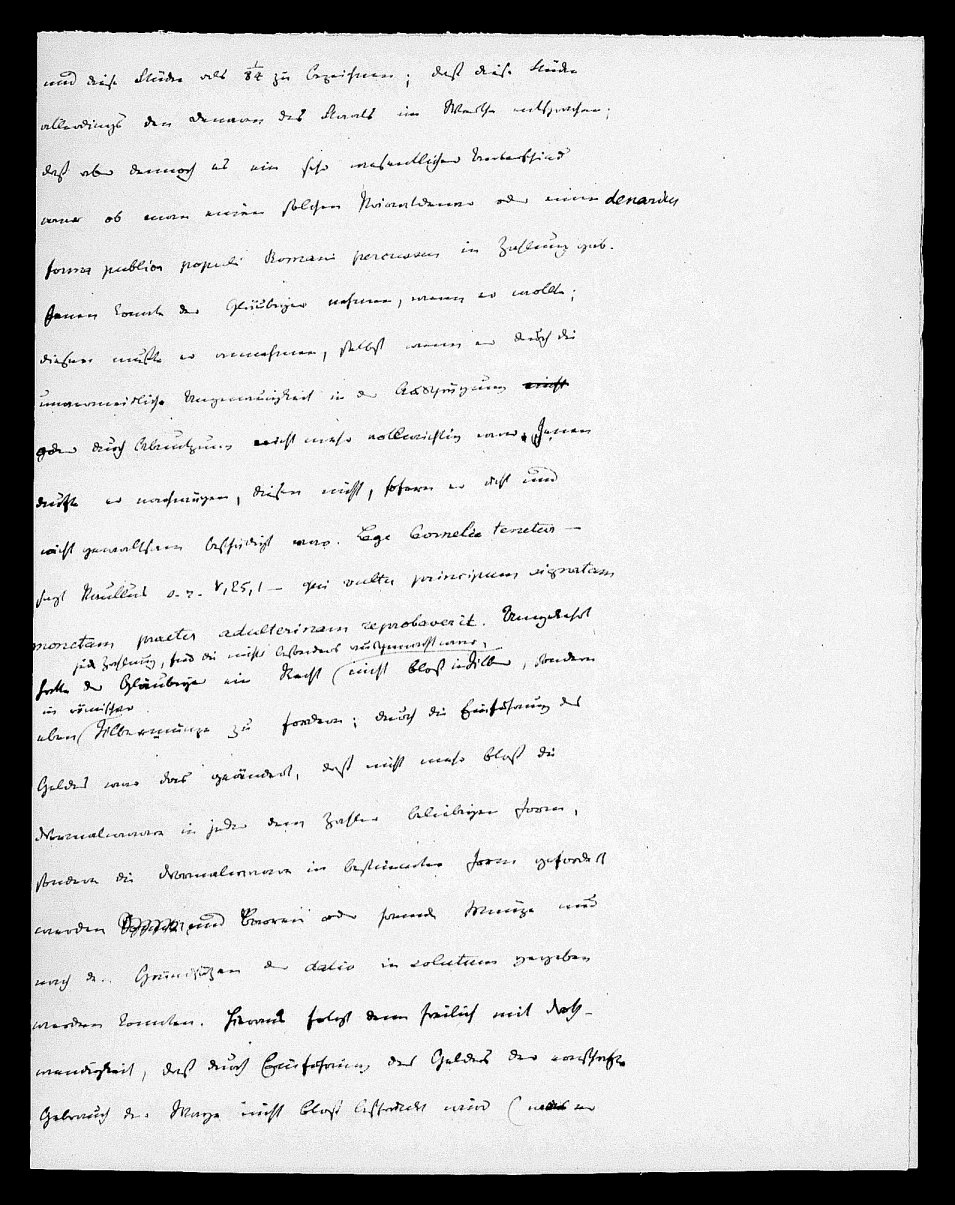 und diese Stücke als 1/84 zu bezeichnen; daß diese Stücke
allerdings den Denaren des Staats im Werthe entsprachen;
daß aber dennoch es ein sehr wesentlicher Unterschied
war ob man einen solchen Privatdenar oder einen denarius
forma publica populi Romani percussus in Zahlung gab.
Jenen konnte der Gläubiger nehmen, wenn er wollte;
diesen mußte er annehmen, selbst wenn er durch die
unvermeidliche Ungenauigkeit in der Ausprägung nicht
oder durch Abnutzung nicht mehr vollwichtig war. Jenen
durfte er nachwägen, diesen nicht, sofern er ächt und
nicht gewaltsam beschädigt war. Lege Cornelia tenetur —
sagt Paullus s. r. V, 25, 1 — qui vultu principum signatam
monetam praeter adulterinam reprobaverit. Umgekehrt
für Zahlung, sind die nichts besonders ausgemacht war,
hatte der Gläubiger ein Recht nicht bloß in Silber, sondern
in römischer
eben Silbermünze zu fordern; durch die Einführung des
Geldes war das geändert, daß nicht mehr bloß die
Normalwaare in jeder dem Zahler beliebigen Form,
sondern die Normalwaare in bestimmter Form gefordert
werden und Barren oder fremde Münze nur
nach den Grundsätzen der datio in solutum gegeben
werden konnten. Hieraus folgt denn freilich mit Noth-
wendigkeit, daß durch Einführung des Geldes der
Gebrauch der Wage nicht bloß beschränkt wird (